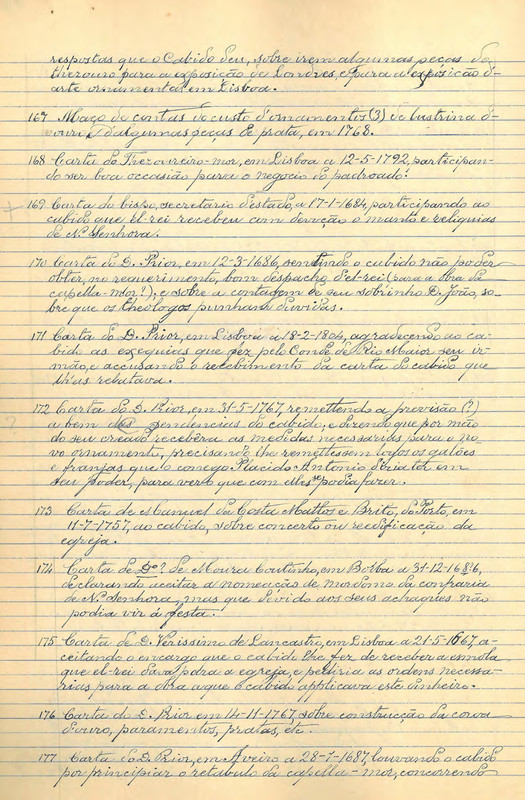 respostas que o Cabido deu, sobre irem algumas peças do
thezouro para a exposição de Londres, e para a exposição d'
arte ornamental em Lisboa.
167 Maço de contas do custo d'ornamentos (3) de lustrina d'
ouro, e d'algumas peças de prata, em 1768.
168 Carta do Thezoureiro-mor, em Lisboa a 12-5-1792, participan-
do ser boa occasião para o negocio do padroado.
169 Carta do bispo, secretario d'estado, a 17-1-1684, participando ao
cabido que el-rei recebeu com devoção o manto e reliquias
de N.ª Senhora.
170 Carta do D. Prior, em 12-3-1686, sentindo o cabido não poder
obter, no requerimento, bom despacho d'el-rei (para a obra da
capella-mor?), e sobre a contagem de seu sobrinho D. João, so-
bre que os theologos punham duvidas.
171 Carta do D. Prior, em Lisboa a 18-2-1804, agradecendo ao ca-
bido as exequias que fez pelo Conde de Rio Maior seu ir-
mão, e accusando o recebimento da carta do cabido que
th'as relatava.
172 Carta do D. Prior, em 31-5-1767, remettendo a provisão (?)
a bem das pendencias do cabido, e dizendo que por mão
do seu creado recebêra as medidas necessarias para o no-
vo ornamento, precisando lhe remettessem logo os galões
e franjas que o conego Placido Antonio dizia ter em
seu poder, para ver o que com elles se podia fazer.
173 Carta de Manuel da Costa Mattos e Brito, do Porto, em
11-7-1757, ao cabido, sobre concerto ou reedificação da
egreja.
174 Carta de D.º? de Moura Coutinho, em Borba a 31-12-1686,
declarando aceitar a nomeacção de mordomo da confraria
de N.ª Senhora, mas que devido aos seus achaques não
podia vir á festa.
175 Carta de D. Verissimo de Lancastro, em Lisboa a 21-5-1667, a-
ceitando o encargo que o cabido lhe fez de receber a esmola
que el-rei dava para a egreja, e pediria as ordens necessa-
rias para a obra a que o cabido applicava este dinheiro.
176 Carta do D. Prior em 14-11-1767, sobre construcção da coroa
d'ouro, paramentos, pratas, etc.
177 Carta do D. Prior, em Aveiro a 28-7-1687, louvando o cabido
por principiar o retabulo da capella-mor, concorrendo